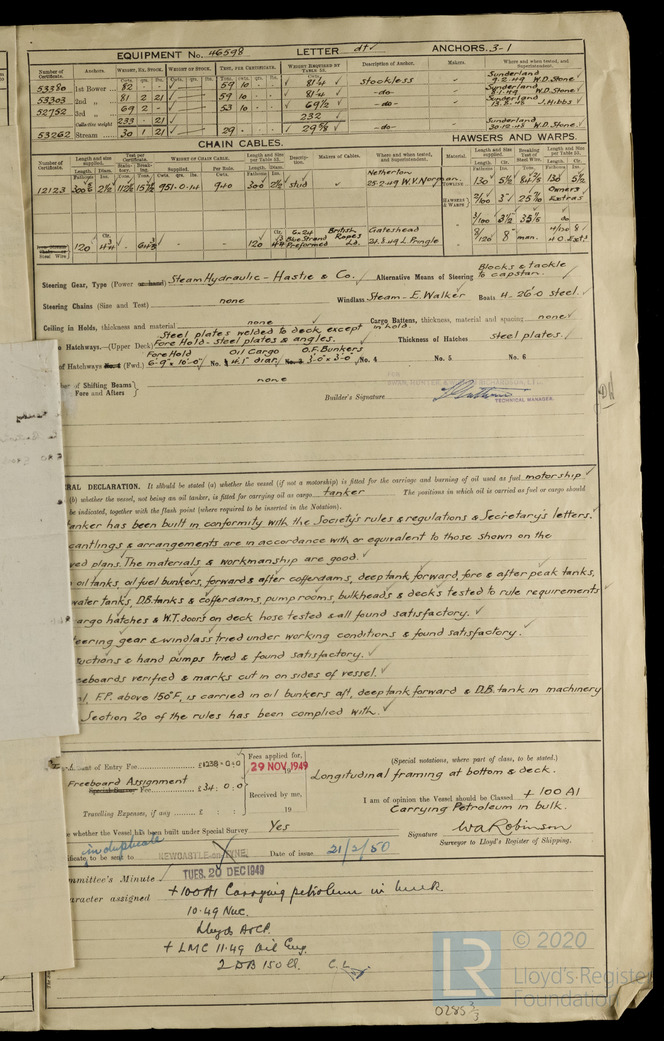 EQUIPMENT No. 46598 LETTER dt ANCHORS. 3-1
Number of Certificate. Anchors. WEIGHT, EX. STOCK. WEIGHT OF STOCK. TEST, PER CERTIFICATE. WEIGHT REQUIRED BY TABLE 53. Description of Anchor. Makers. Where and when tested, and Superintendent.
53380 1st Bower 82 - - 59 10 - - 81¼ stockless Sunderland 9.2.49 W.D. Stone
53303 2nd „ 81 2 21 59 10 - - 81¼ -do- Sunderland W.D. Stone
52752 3rd „ 69 2 - 53 10 - - 69½ -do- Sunderland J. Hibbs
Collective weight 233 - 21 232
53262 Stream 30 1 21 29 29⅝ -do- Sunderland 30.12.48 W.D. Stone
CHAIN CABLES. HAWSERS AND WARPS.
Number of Certificate. Length and size supplied. Test per Certificate. WEIGHT OF CHAIN CABLE. Length and size per Table 53. Description. Makers of Cables. Where and when tested, and Superintendent. Material. Length and size supplied. Breaking Test of Steel Wire. Length and size per Table 53.
12123 951-0-14 940 300 stud Netherton 25.2.49 W.V. Norman. TOWLINE 130 5½ 130 5½
HAWSERS & WARPS 2/100 3" Owners Extras
3½ do
Steel Wire 120 4¾ 120 4¾ 6-24 Blue Strand Preformed British Ropes Ld. Gateshead L. Pringle 8/120 8" man.
Steering Gear, Type (Power or hand) Steam Hydraulic - Hastie & Co. Alternative Means of Steering Blocks & tackle to capstan.
Steering Chains (Size and Test) none Windlass Steam - E. Walker Boats 4. 26'0 steel.
Ceiling in Holds, thickness and material none Cargo Battens, thickness, material and spacing none in hold.
Hatchways.—(Upper Deck) Steel plates welded to deck except Fore Hold - steel plates & angles. Thickness of Hatches steel plates.
of Hatchways No. 1 (Fwd.) Fore Hold 6'-9" x 10'-0" No. 2 Oil Cargo 4'.1" diar. No. 3 O.F. Bunkers 3'.0" x 3'-0" No. 4 No. 5 No. 6
of Shifting Beams Fore and Afters } none
FOR
SWAN, HUNTER & WIGHAM RICHARDSON, LTD.,
Builder's Signature
TECHNICAL MANAGER.
RAL DECLARATION. It should be stated (a) whether the vessel (if not a motorship) is fitted for the carriage and burning of oil used as fuel motorship
(b) whether the vessel, not being an oil tanker, is fitted for carrying oil as cargo tanker The positions in which oil is carried as fuel or cargo should
be indicated, together with the flash point (where required to be inserted in the Notation).
anker has been built in conformity with the Society's rules & regulations & Secretary's letters.
cantlings & arrangements are in accordance with or equivalent to those shown on the
ved plans. The materials & workmanship are good.
oil tanks, oil fuel bunkers, forward & after cofferdams, deep tank, forward, fore & after peak tanks,
water tanks, D.B. tanks & cofferdams, pump rooms, bulkheads & decks tested to rule requirements
argo hatches & W.T. doors on deck hose tested & all found satisfactory.
eering gear & windlass tried under working conditions & found satisfactory.
uctions & hand pumps tried & found satisfactory.
eeboards verified & marks cut in on sides of vessel.
F.P. above 150°F, is carried in oil bunkers aft, deep tank forward & D.B. tank in machinery
Section 20 of the rules has been complied with.
of Entry Fee £1238:0:0 Fees applied for, 29 NOV. 1949 (Special notations, where part of class, to be stated.)
Freeboard Assignment Longitudinal framing at bottom & deck.
Special Survey Fee £34:0:0 Received by me, I am of opinion the Vessel should be Classed + 100 A1
Travelling Expenses, if any £ : : 19 Carrying Petroleum in bulk.
whether the Vessel has been built under Special Survey Yes Signature W A Robinson
in duplicate Surveyor to Lloyd's Register of Shipping.
ficate to be sent to NEWCASTLE-ON-TYNE Date of issue 21/2/50
mmittee's Minute TUES. 20 DEC 1949
aracter assigned + 100A1 Carrying petroleum in bulk
10.49 Nwc.
Lloyds A&CP.
+ LMC 11.49 Oil Eng.
2 DB 150 lb. C.L.
LR
© 2020
Lloyd's Register
Foundation
02853/3